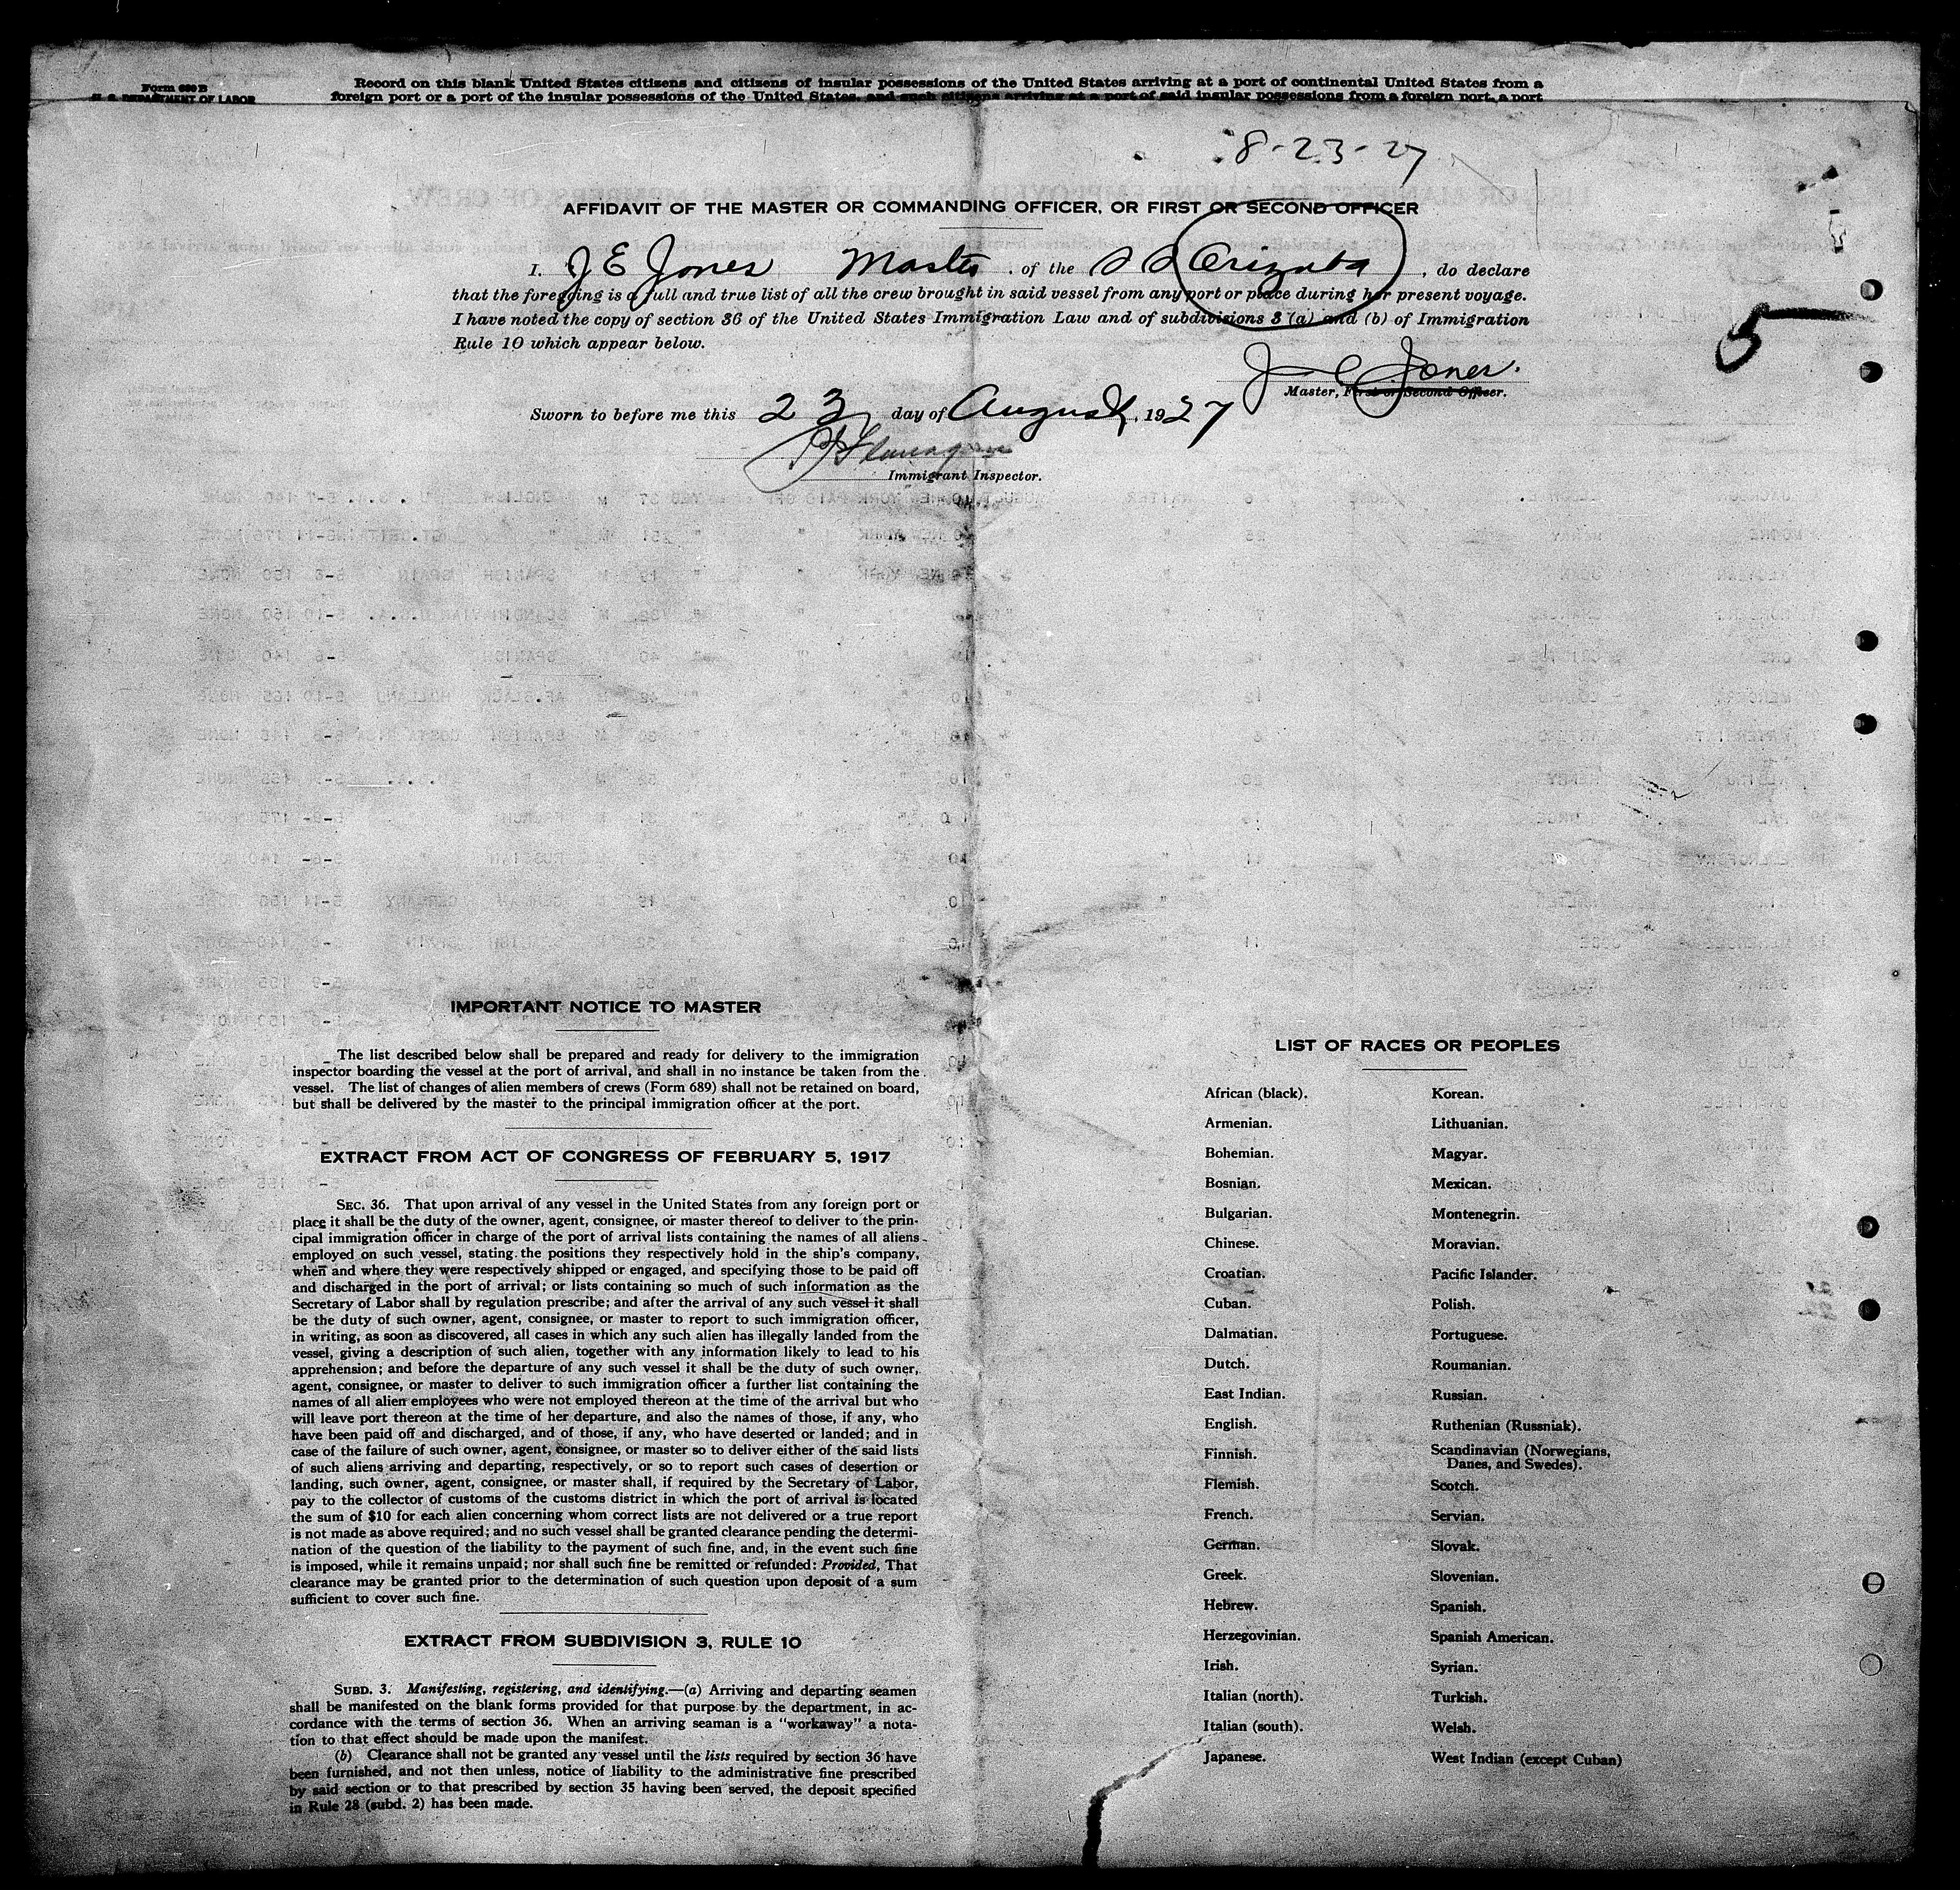 Form 680 B
U. S. DEPARTMENT OF LABOR
Record on this blank United States citizens and citizens of insular possessions of the United States arriving at a port of continental United States from a
foreign port or a port of the insular possessions of the United States, and such citizens arriving at a port of said insular possessions from a foreign port, a port
8-23-27
AFFIDAVIT OF THE MASTER OR COMMANDING OFFICER, OR FIRST OR SECOND OFFICER
I, J E Jones Master, of the S S Orizaba, do declare
that the foregoing is a full and true list of all the crew brought in said vessel from any port or place during her present voyage.
I have noted the copy of section 36 of the United States Immigration Law and of subdivisions 3 (a) and (b) of Immigration
Rule 10 which appear below.
5
J E Jones.
Master, First or Second Officer.
Sworn to before me this 23 day of August, 1927
Immigrant Inspector.
IMPORTANT NOTICE TO MASTER
The list described below shall be prepared and ready for delivery to the immigration
inspector boarding the vessel at the port of arrival, and shall in no instance be taken from the
vessel. The list of changes of alien members of crews (Form 689) shall not be retained on board,
but shall be delivered by the master to the principal immigration officer at the port.
EXTRACT FROM ACT OF CONGRESS OF FEBRUARY 5, 1917
SEC. 36. That upon arrival of any vessel in the United States from any foreign port or
place it shall be the duty of the owner, agent, consignee, or master thereof to deliver to the prin-
cipal immigration officer in charge of the port of arrival lists containing the names of all aliens
employed on such vessel, stating the positions they respectively hold in the ship's company,
when and where they were respectively shipped or engaged, and specifying those to be paid off
and discharged in the port of arrival; or lists containing so much of such information as the
Secretary of Labor shall by regulation prescribe; and after the arrival of any such vessel it shall
be the duty of such owner, agent, consignee, or master to report to such immigration officer,
in writing, as soon as discovered, all cases in which any such alien has illegally landed from the
vessel, giving a description of such alien, together with any information likely to lead to his
apprehension; and before the departure of any such vessel it shall be the duty of such owner,
agent, consignee, or master to deliver to such immigration officer a further list containing the
names of all alien employees who were not employed thereon at the time of the arrival but who
will leave port thereon at the time of her departure, and also the names of those, if any, who
have been paid off and discharged, and of those, if any, who have deserted or landed; and in
case of the failure of such owner, agent, consignee, or master so to deliver either of the said lists
of such aliens arriving and departing, respectively, or so to report such cases of desertion or
landing, such owner, agent, consignee, or master shall, if required by the Secretary of Labor,
pay to the collector of customs of the customs district in which the port of arrival is located
the sum of $10 for each alien concerning whom correct lists are not delivered or a true report
is not made as above required; and no such vessel shall be granted clearance pending the determi-
nation of the question of the liability to the payment of such fine, and, in the event such fine
is imposed, while it remains unpaid; nor shall such fine be remitted or refunded: Provided, That
clearance may be granted prior to the determination of such question upon deposit of a sum
sufficient to cover such fine.
EXTRACT FROM SUBDIVISION 3, RULE 10
SUBD. 3. Manifesting, registering, and identifying.—(a) Arriving and departing seamen
shall be manifested on the blank forms provided for that purpose by the department, in ac-
cordance with the terms of section 36. When an arriving seaman is a "workaway" a nota-
tion to that effect should be made upon the manifest.
(b) Clearance shall not be granted any vessel until the lists required by section 36 have
been furnished, and not then unless, notice of liability to the administrative fine prescribed
by said section or to that prescribed by section 35 having been served, the deposit specified
in Rule 28 (subd. 2) has been made.
LIST OF RACES OR PEOPLES
African (black).
Armenian.
Bohemian.
Bosnian.
Bulgarian.
Chinese.
Croatian.
Cuban.
Dalmatian.
Dutch.
East Indian.
English.
Finnish.
Flemish.
French.
German.
Greek.
Hebrew.
Herzegovinian.
Irish.
Italian (north).
Italian (south).
Japanese.
Korean.
Lithuanian.
Magyar.
Mexican.
Montenegrin.
Moravian.
Pacific Islander.
Polish.
Portuguese.
Roumanian.
Russian.
Ruthenian (Russniak).
Scandinavian (Norwegians,
Danes, and Swedes).
Scotch.
Servian.
Slovak.
Slovenian.
Spanish.
Spanish American.
Syrian.
Turkish.
Welsh.
West Indian (except Cuban)